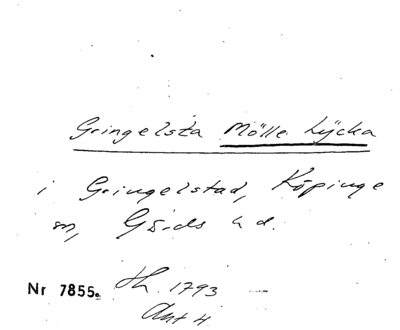 Gringelsta Mölle Lycka
i Gringelstad, Köpinge
sn, Gärds hd.
Nr 7855. Ah. 1793
Akt 4